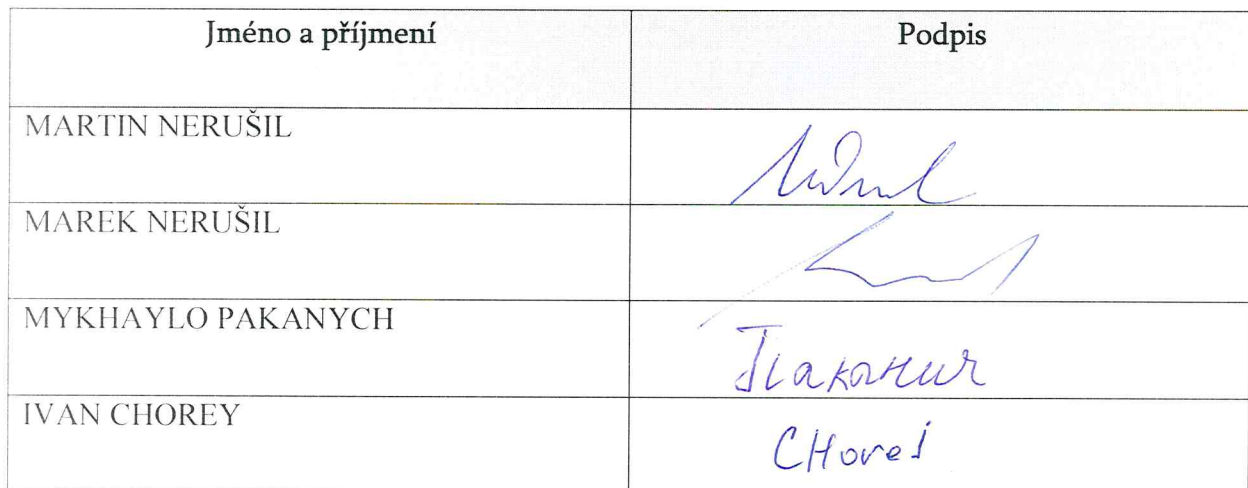 Jméno a příjmení Podpis
MARTIN NERUŠIL
MAREK NERUŠIL
MYKHAYLO PAKANYCH Паканич
IVAN CHOREY CHorei